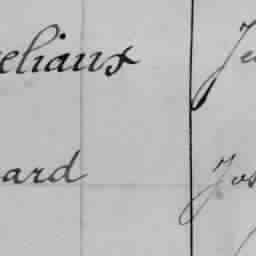 eliaux Je
ard Jos